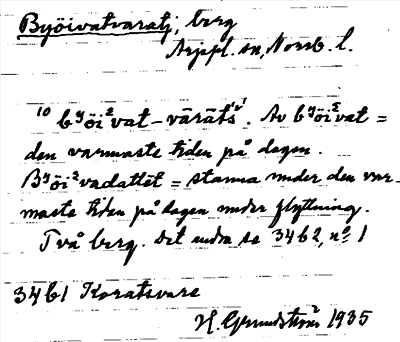 Byöivatvaratj, berg
Arjepl. sn, Norrb. l.
10 bʸöi²vat-vāràtś. Av bʸöi²vat =
den varmaste tiden på dagen.
Bʸöi²vadattēt = stanna under den var-
maste tiden på dagen under flyttning.
Två berg. Det andra se 3462, nº 1
3461 Koratsvare
H. Grundström 1935